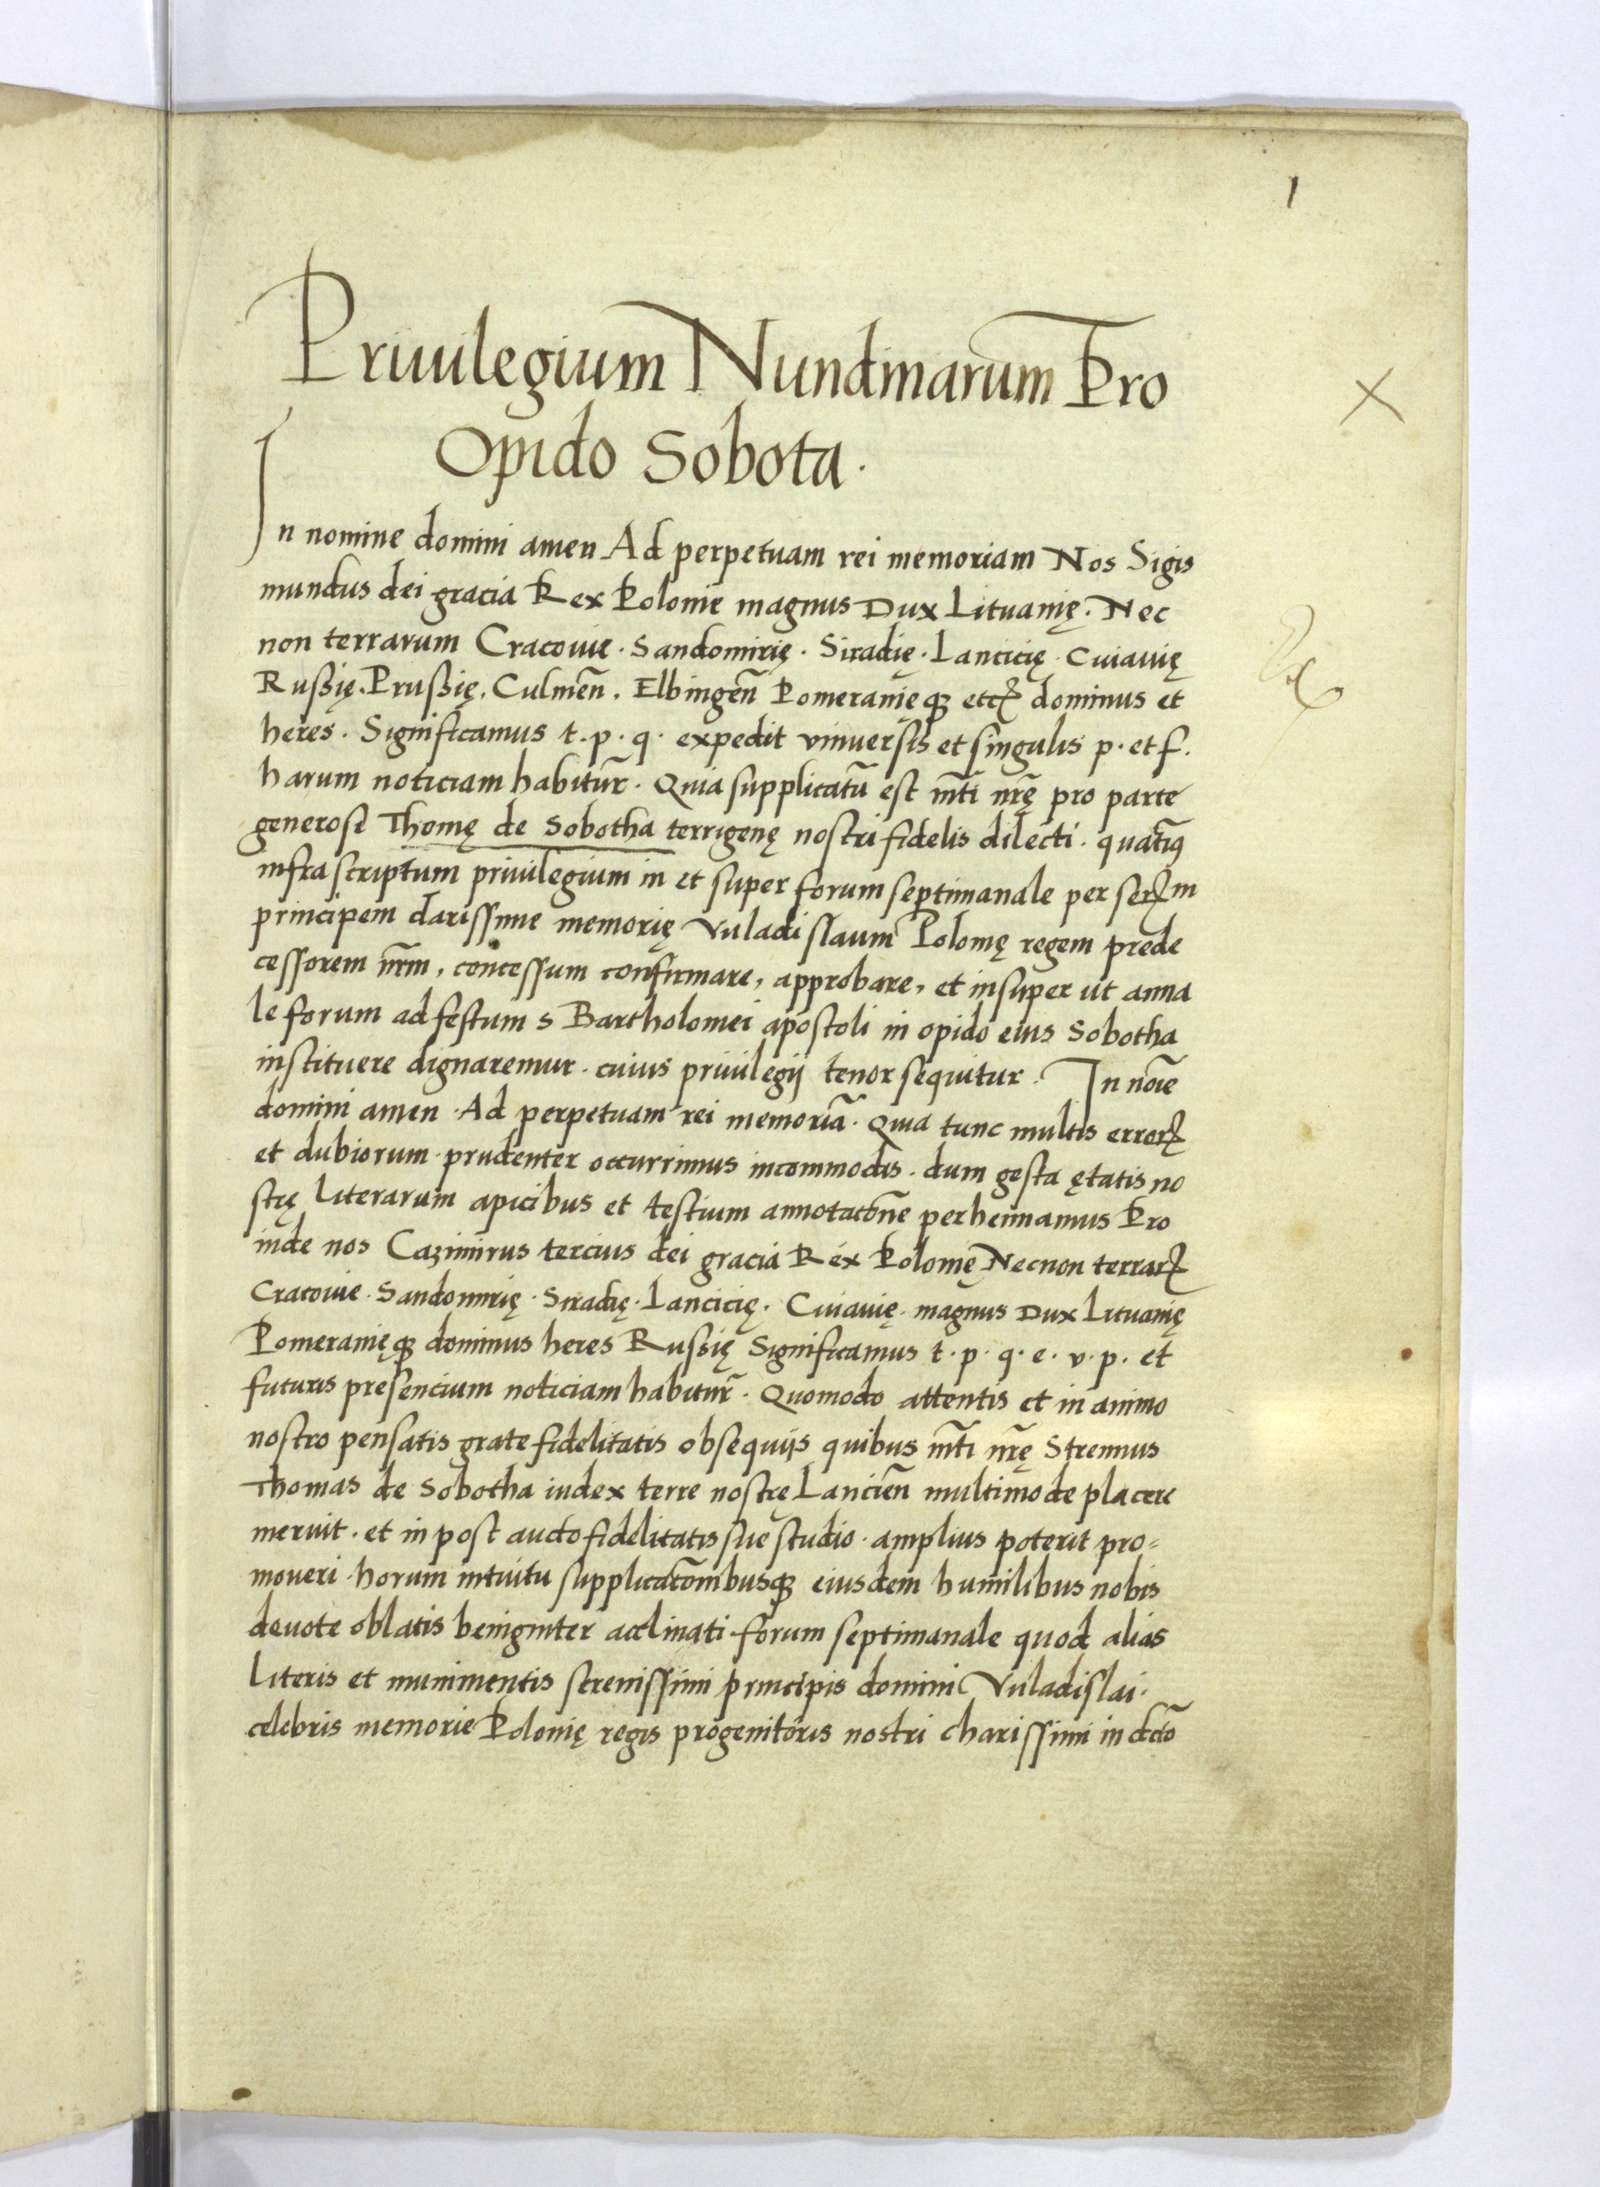 1
Priuilegium Nundinarum Pro
Opido Sobota.
In nomine domini amen Ad perpetuam rei memoriam Nos Sigis
mundus dei gracia Rex Polonie magnus Dux Lituanię. Nec
non terrarum Cracouie. Sandomirię. Siradię. Lancicię. Cuiauię
Rußię. Prußię. Culmeñ. Elbingeñ Pomeranięq₃ etc̃ dominus et
heres. Significamus t. p. q. expedit vniuersis et singulis p. et f.
harum noticiam habitur̃. Quia supplicatũ est mti nrę pro parte
generosi Thomę de Sobotha terrigenę nostri fidelis dilecti. quatiꝰ
infra scriptum priuilegium in et super forum septimanale per serꝫm
principem clarissime memorię Vuladislaum Polonię regem prede
cessorem nr̃m, concessum confirmare, approbare, et insuper ut anna
le forum ad festum s Bartholomei apostoli in opido eius Sobotha
instituere dignaremur. cuius priuilegij tenor sequitur. In noĩe
domini amen. Ad perpetuam rei memoriã. Quia tunc multis errorꝝ
et dubiorum prudenter occurrimus incommodis. dum gesta ętatis no
strę literarum apicibus et testium annotacõne perhennamus Pro
inde nos Cazimirus tercius dei gracia Rex Polonię Necnon terrarꝝ
Cracouie. Sandomirię. Siradię. Lancicię. Cuiauię. magnus Dux Lituanię
Pomeranięq₃ dominus heres Rußię Significamus t. p. q. e. v. p. et
futuris presencium noticiam habitur̃. Quomodo attentis et in animo
nostro pensatis grate fidelitatis obsequijs quibus mti nrę Strennus
Thomas de Sobotha iudex terre nostrę Lancieñ multimode placere
meruit. et in post aucto fidelitatis sue studio. amplius poterit pro=
moueri. horum intuitu supplicacõnibusq₃ eiusdem humilibus nobis
deuote oblatis benigniter acclinati. forum septimanale quod alias
literis et munimentis serenissimi principis domini Vuladislai.
celebris memorie Polonię regis progenitoris nostri charissimi in dcto